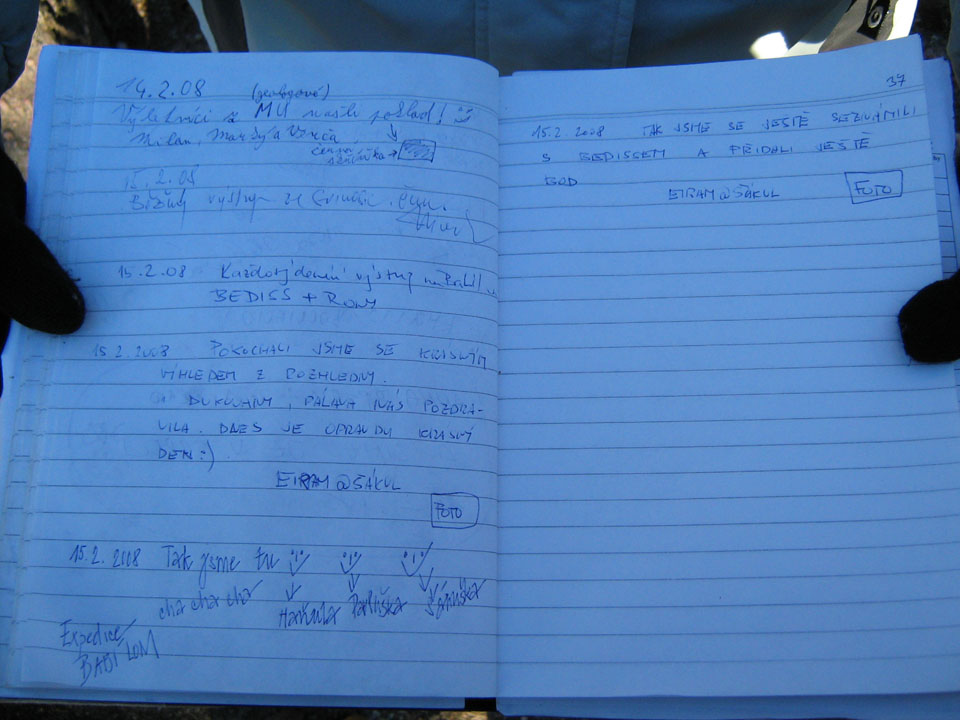 14.2.08 (geologové)
Výletníci z MU našli poklad!
Milan, Marky a
černá
15.2.08
Běžný výstup ze
15.2.08 Každotýdenní výstup na
BEDISS + RONY
15.2.2008 POKOCHALI JSME SE KRÁSNÝM
VÝHLEDEM Z ROZHLEDNY.
DUKOVANY, PÁLAVA NÁS POZDRA-
VILA. DNES JE OPRAVDU KRÁSNÝ
DEN :)
EIRAM@ŠÁKUL
FOTO
15.2.2008 Tak jsme tu
cha cha cha Pavliška
Expedice
BABÍ LOM
37
15.2.2008 TAK JSME SE JEŠTĚ SEZNÁMILI
S BEDISSEM A PŘIDALI JEŠTĚ
BOD
EIRAM@ŠÁKUL FOTO